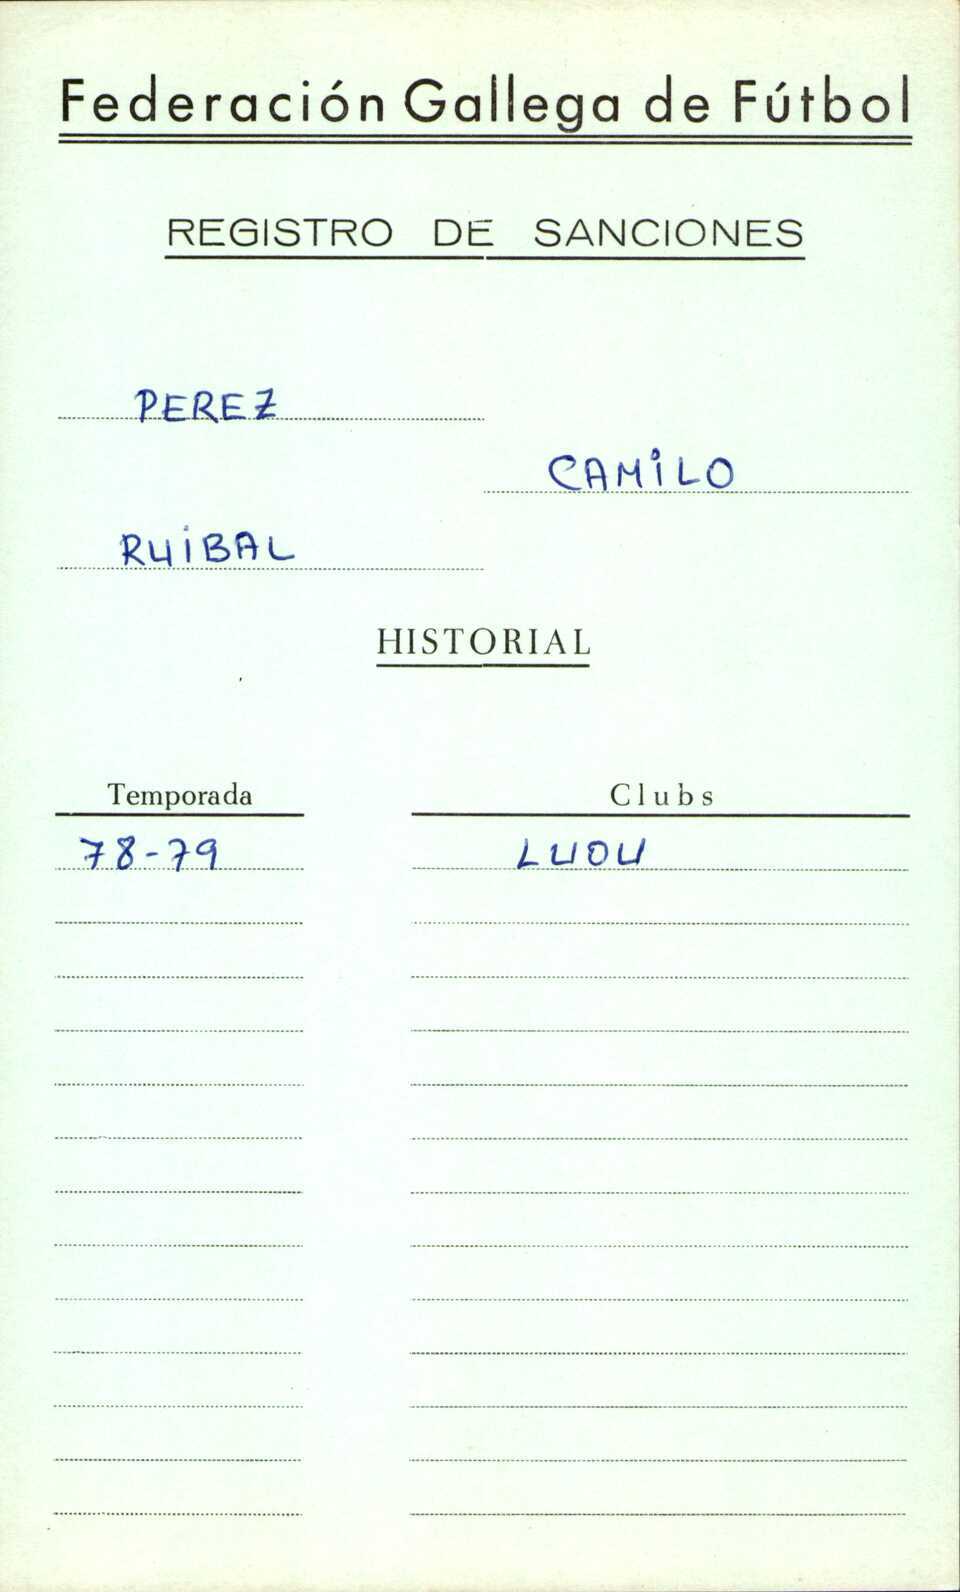 Federación Gallega de Fútbol
REGISTRO DE SANCIONES
PEREZ
CAMILO
RUIBAL
HISTORIAL
Temporada Clubs
78-79 LUOU